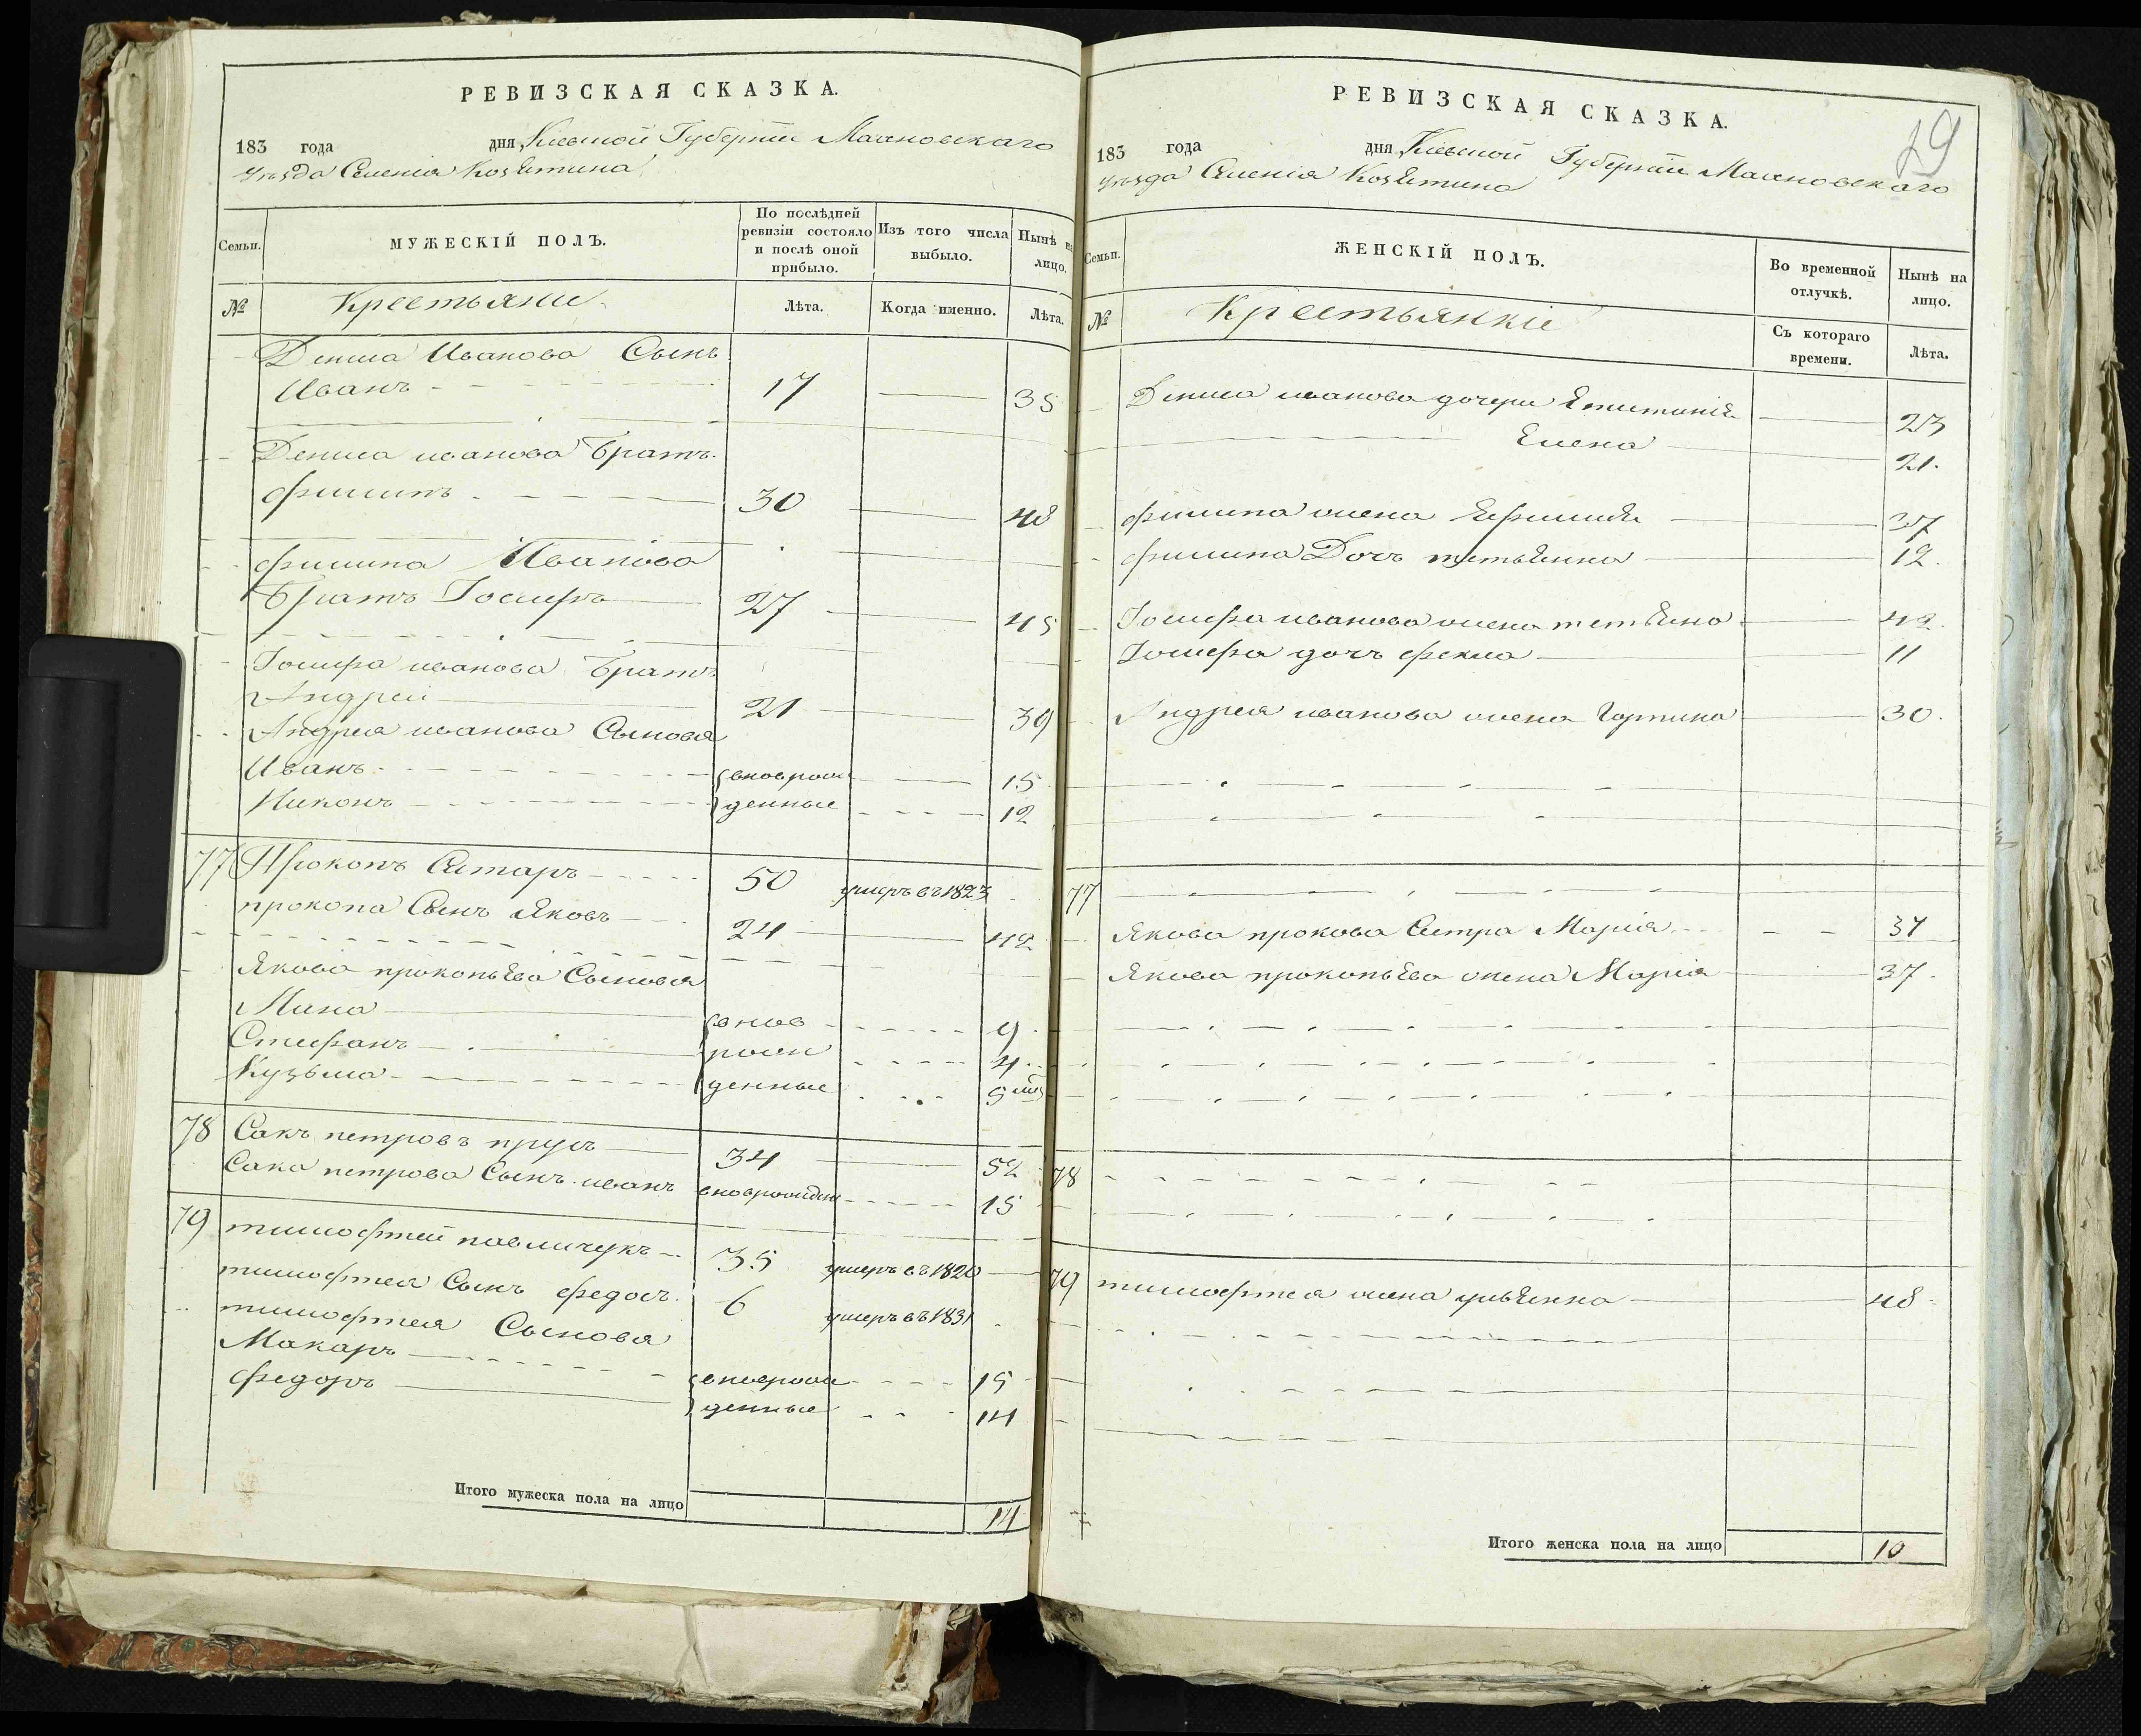 РЕВИЗСКАЯ СКАЗКА.
183 года дня Кіевской Губерніи Махновскаго
Уѣзда Селенія Козятина
Семьи. МУЖЕСКІЙ ПОЛЪ. По послѣдней ревизіи состояло и послѣ оной прибыло. Изъ того числа выбыло. Нынѣ на лицо.
№ Крестьяни Лѣта. Когда именно. Лѣта.
Дениса Иванова Сынъ
Иванъ 17 35
Дениса иванова братъ
филипъ 30 48
филипа Иванова
братъ Іосифъ 27 45
Іосифа иванова братъ
Андрей 21 39
Андрея иванова Сыновя
Иванъ вновь рож 15
Никонъ денные 12
77 Прокопъ Ситаръ 50 умеръ въ 1823
прокопа Сынъ Яковъ 24 42
Якова прокопьева Сыновя
Мина внов 9
Стефанъ рож 4
Кузьма денные 5 мѣ
78 Сакъ петровъ прусъ 34 52
Сака петрова Сынъ иванъ вноврожден 15
79 тимофтей павличукъ 35 умеръ въ 1820
тимофтея Сынъ федосъ 6 умеръ въ 1831
тимофтея Сыновя
Макаръ вноврож 15
федоръ денные 14
Итого мужеска пола на лицо 14
РЕВИЗСКАЯ СКАЗКА.
29
183 года дня Кіевской Губерніи Махновскаго
Уѣзда Селенія Козятина
Семьи. ЖЕНСКІЙ ПОЛЪ. Во временной отлучкѣ. Нынѣ на лицо.
№ Крестьянкіе Съ котораго времени. Лѣта.
Дениса иванова дочери 23
Елена 21.
филипа жена 37
филипа Дочъ тетьяна 12.
Іосифа иванова жена тетьяна 42.
Іосифа дочъ фекла 11
Андрея иванова жена 30.
77
Якова прокова Систра Марія 34
Якова прокопьева жена Марія 37.
78
79 тимофтея жена ульянна 48
Итого женска пола на лицо 10